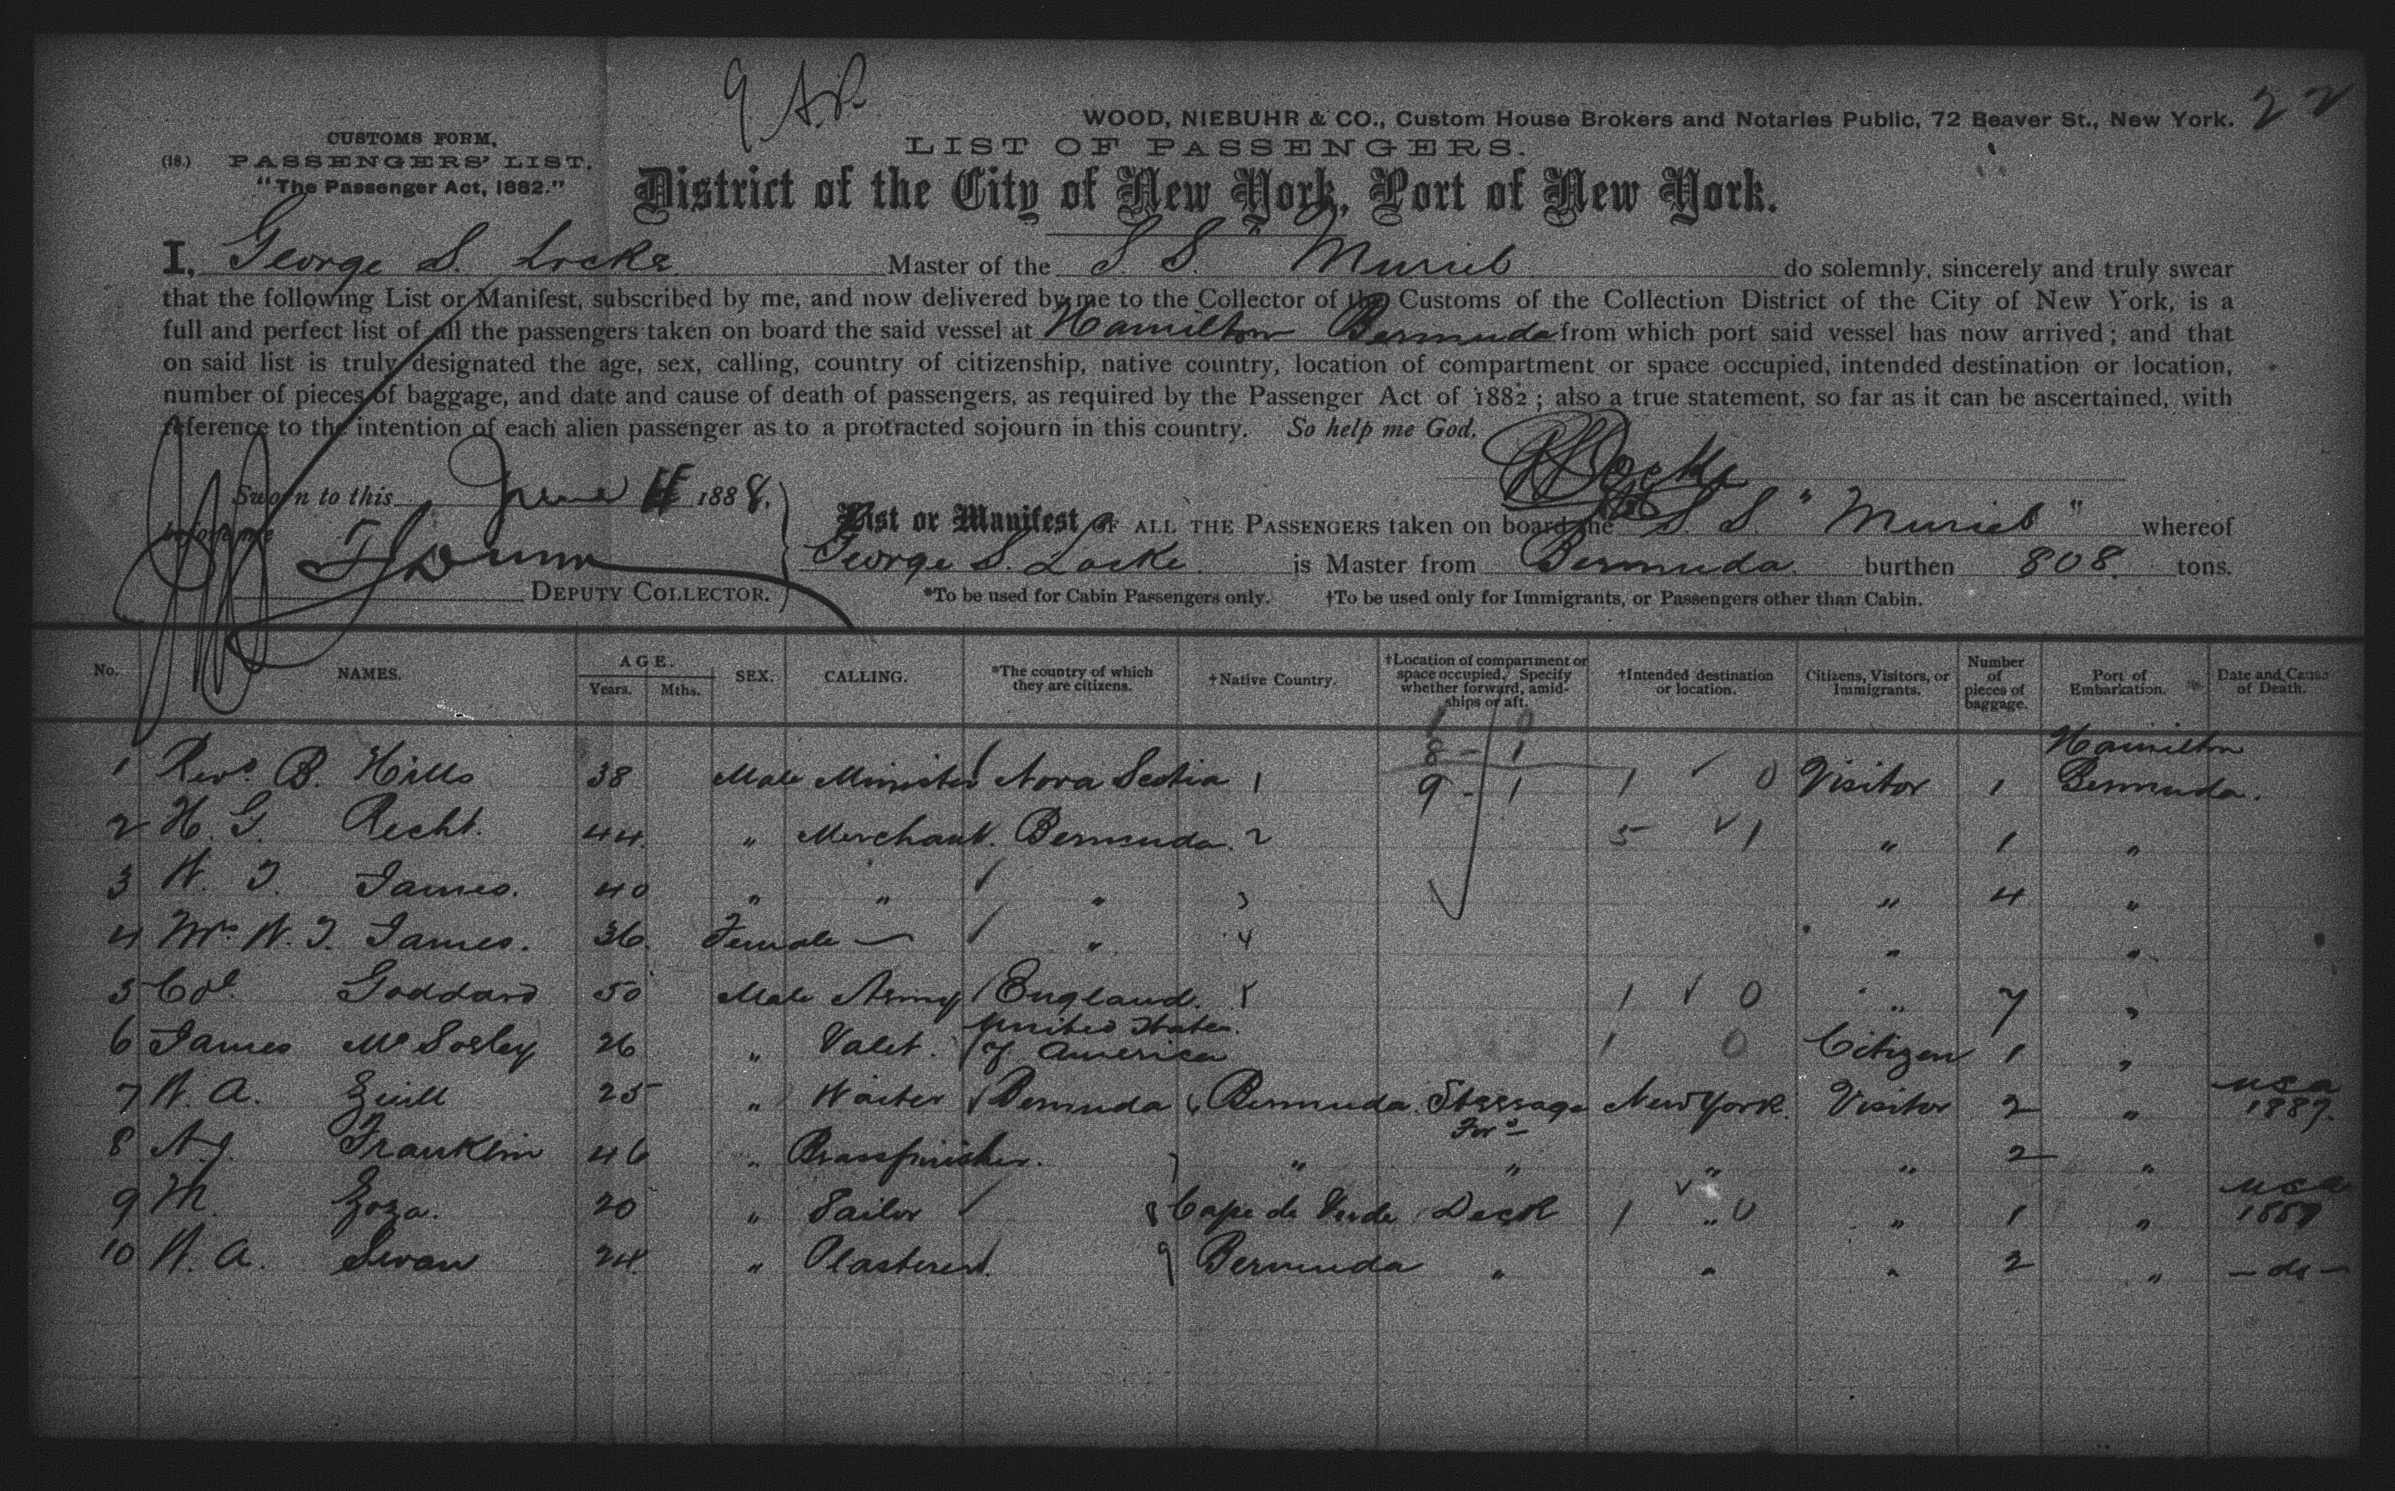 22
WOOD, NIEBUHR & CO., Custom House Brokers and Notaries Public, 72 Beaver St., New York.
CUSTOMS FORM,
(18.) PASSENGERS' LIST.
"The Passenger Act, 1882."
LIST OF PASSENGERS.
District of the City of New York, Port of New York.
I, George S. Locke Master of the S. S. "Muriel do solemnly, sincerely and truly swear
that the following List or Manifest, subscribed by me, and now delivered by me to the Collector of the Customs of the Collection District of the City of New York, is a
full and perfect list of all the passengers taken on board the said vessel at Hamilton Bermuda from which port said vessel has now arrived; and that
on said list is truly designated the age, sex, calling, country of citizenship, native country, location of compartment or space occupied, intended destination or location,
number of pieces of baggage, and date and cause of death of passengers, as required by the Passenger Act of 1882; also a true statement, so far as it can be ascertained, with
reference to the intention of each alien passenger as to a protracted sojourn in this country. So help me God.
Locke
Sworn to this June 1888.
before me
DEPUTY COLLECTOR.
List or Manifest OF ALL THE PASSENGERS taken on board the S. S. "Muriel" whereof
George S. Locke is Master from Bermuda. burthen 808. tons.
*To be used for Cabin Passengers only. †To be used only for Immigrants, or Passengers other than Cabin.
No. NAMES. AGE. Years. Mths. SEX. CALLING. *The country of which they are citizens. †Native Country. †Location of compartment or space occupied. Specify whether forward, amidships or aft. †Intended destination or location. Citizens, Visitors, or Immigrants. Number of pieces of baggage. Port of Embarkation. Date and Cause of Death.
8 - 1
9 - 1
1 Revd. B. Hills 38 Male Minister Nova Scotia 1 1 0 Visitor 1 Hamilton Bermuda.
2 H. G. Recht. 44. " Merchant. Bermuda. 2 5 1 " 1 "
3 W. T. James. 40 " " " 3 " 4 "
4 Mrs W. T. James. 36. Female — " 4 " "
5 Col. Goddard 50 Male Army England. 1 0 " 7 "
6 James McSorley 26 " Valet. United States of America 1 0 Citizen 1 "
7 W. A. Zuill 25 " Waiter Bermuda Bermuda. Steerage Ford New York. Visitor 2 " USA 1887.
8 A. J. Franklin 46 " Brassfinisher. 7 " " " " 2 "
9 M. Zoza. 20 " Tailor 8 Cape de Verde Deck 1 " 0 " 1 " USA
10 W. A. Swan 24. " Plasterer. 9 Bermuda " " " 2 " — do —